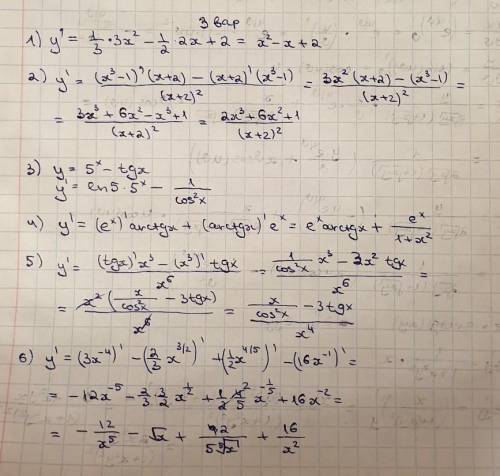 3 вар
1) y' = 1/3 · 3x² − 1/2 · 2x + 2 = x² − x + 2
2) y' = ((x³−1)'(x+2) − (x+2)'(x³−1))/(x+2)² = (3x²(x+2) − (x³−1))/(x+2)² =
= (3x³ + 6x² − x³ + 1)/(x+2)² = (2x³ + 6x² + 1)/(x+2)²
3) y = 5ˣ − tgx
y' = ln5 · 5ˣ − 1/cos²x
4) y' = (eˣ)' arctgx + (arctgx)' eˣ = eˣ arctgx + eˣ/(1+x²)
5) y' = ((tgx)' x³ − (x³)' tgx)/x⁶ = (1/cos²x · x³ − 3x² tgx)/x⁶ =
= x²(x/cos²x − 3tgx)/x⁶ = (x/cos²x − 3tgx)/x⁴
6) y' = (3x⁻⁴)' − (2/3 x^(3/2))' + (1/2 x^(4/5))' − (16x⁻¹)' =
= −12x⁻⁵ − 2/3 · 3/2 x^(1/2) + 1/2 · 4/5 x^(−1/5) + 16x⁻² =
= −12/x⁵ − √x + 2/(5 ⁵√x) + 16/x²